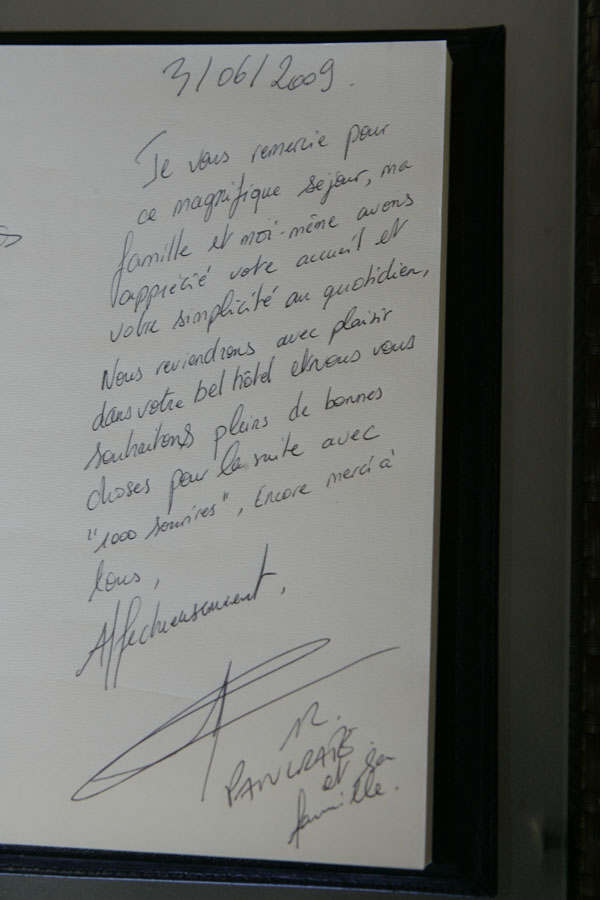 3/06/2009.
Je vous remercie pour
ce magnifique séjour, ma
famille et moi-même avons
apprécié votre accueil et
votre simplicité au quotidien,
Nous reviendrons avec plaisir
dans votre bel hôtel et nous vous
souhaitons pleins de bonnes
choses pour la suite avec
"1000 sourires", Encore merci à
tous,
Affectueusement,
M.
et sa
famille.